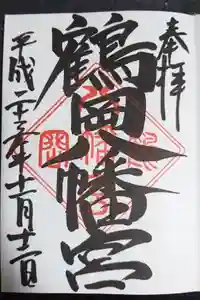 奉拝
鶴岡八幡宮
平成二十三年十一月十一日